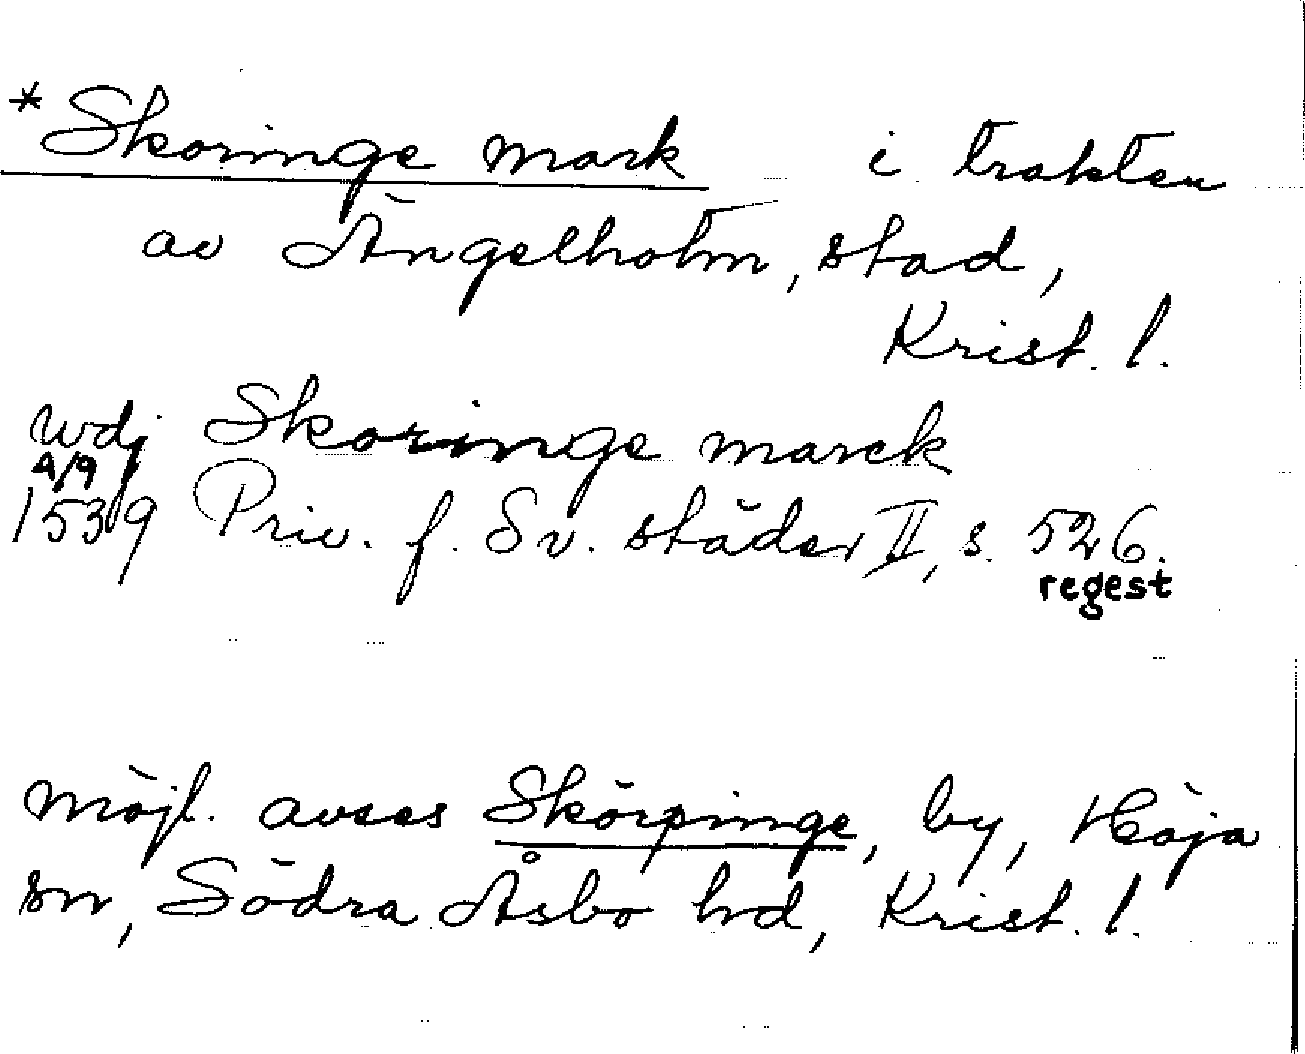 *Skoringe mark i trakten
av Ängelholm, stad,
Krist. l.
wdj Skoringe marck
4/9
1539 Priv. f. Sv. städer II, s. 526.
regest
möjl. avses Skörpinge, by, Höja
sn, Södra Åsbo hd, Krist. l.